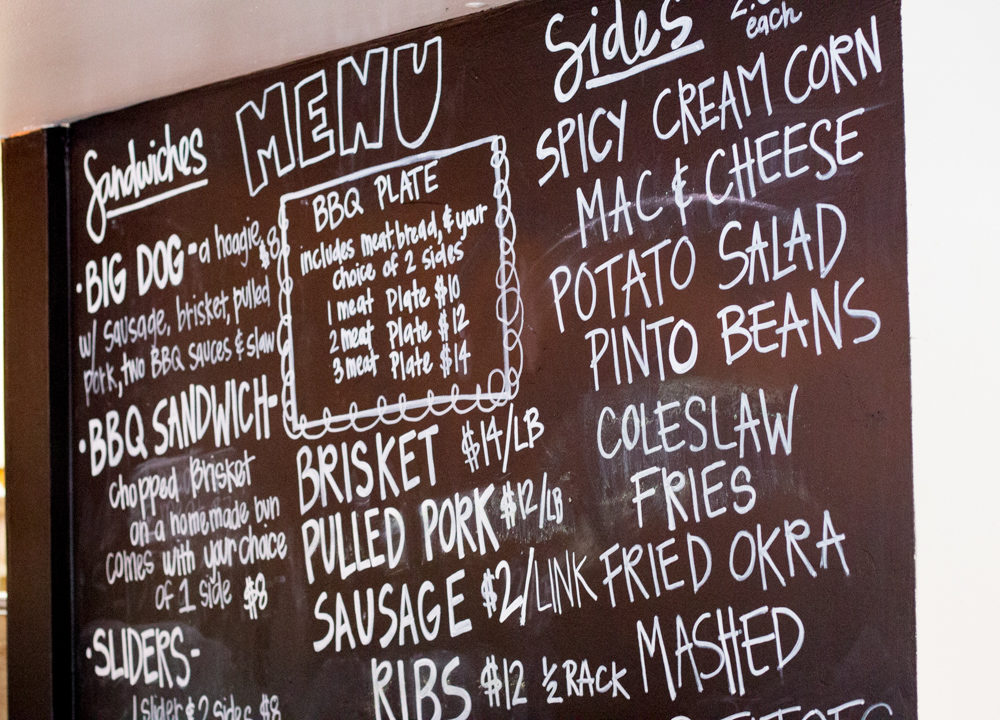 MENU
Sandwiches
·BIG DOG-a hoagie $8
w/ sausage, brisket, pulled
pork, two BBQ sauces & slaw
·BBQ SANDWICH-
chopped Brisket
on a homemade bun
comes with your choice
of 1 side $8
·SLIDERS-
1 slider & 2 sides $8
BBQ PLATE
includes meat, bread, & your
choice of 2 sides
1 meat Plate $10
2 meat Plate $12
3 meat Plate $14
BRISKET $14/LB
PULLED PORK $12/LB
SAUSAGE $2/LINK
RIBS $12 ½ RACK
Sides
each
SPICY CREAM CORN
MAC & CHEESE
POTATO SALAD
PINTO BEANS
COLESLAW
FRIES
FRIED OKRA
MASHED